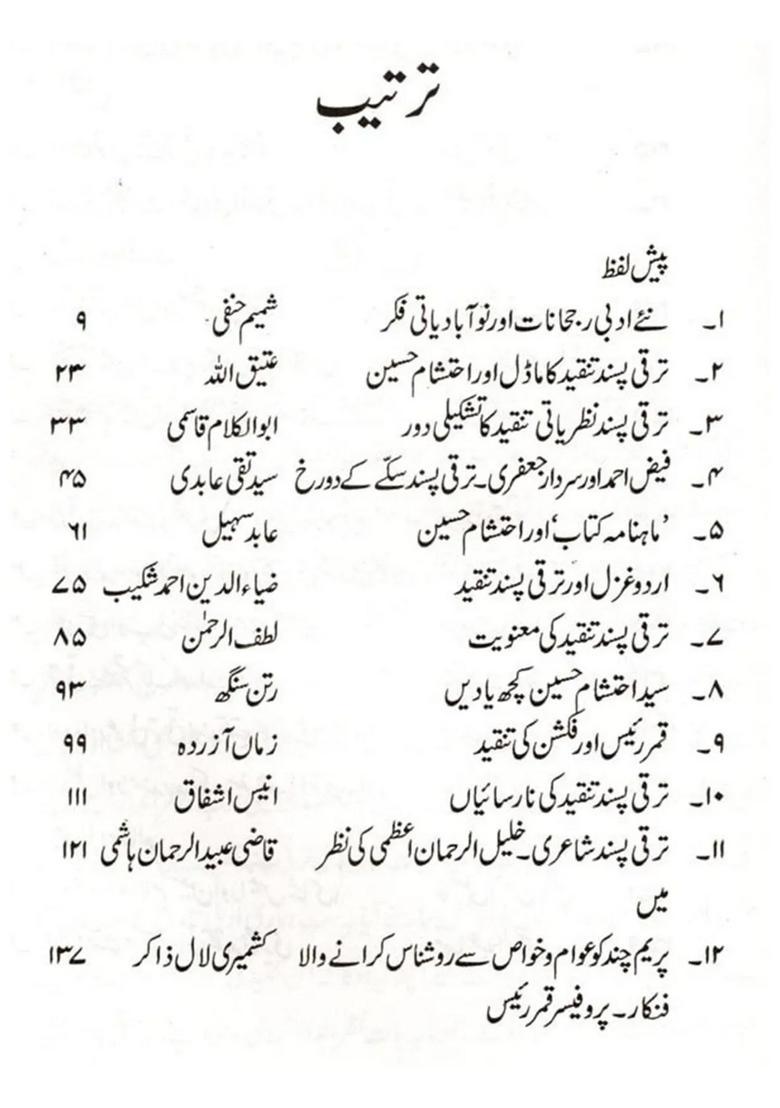 ترتیب
پیش لفظ
۱۔ نئے ادبی رجحانات اور نوآبادیاتی فکر شمیم حنفی ۹
۲۔ ترقی پسند تنقید کا ماڈل اور احتشام حسین عتیق اللہ ۲۳
۳۔ ترقی پسند نظریاتی تنقید کا تشکیلی دور ابوالکلام قاسمی ۳۳
۴۔ فیض احمد اور سردار جعفری۔ ترقی پسند سکّے کے دو رخ سید تقی عابدی ۴۵
۵۔ ’ماہنامہ کتاب‘ اور احتشام حسین عابد سہیل ۶۱
۶۔ اردو غزل اور ترقی پسند تنقید ضیاء الدین احمد شکیب ۷۵
۷۔ ترقی پسند تنقید کی معنویت لطف الرحمٰن ۸۵
۸۔ سید احتشام حسین کچھ یادیں رتن سنگھ ۹۳
۹۔ قمر رئیس اور فکشن کی تنقید زماں آزردہ ۹۹
۱۰۔ ترقی پسند تنقید کی نارسائیاں انیس اشفاق ۱۱۱
۱۱۔ ترقی پسند شاعری۔ خلیل الرحمان اعظمی کی نظر قاضی عبید الرحمان ہاشمی ۱۲۱
میں
۱۲۔ پریم چند کو عوام و خواص سے روشناس کرانے والا کشمیری لال ذاکر ۱۳۷
فنکار۔ پروفیسر قمر رئیس